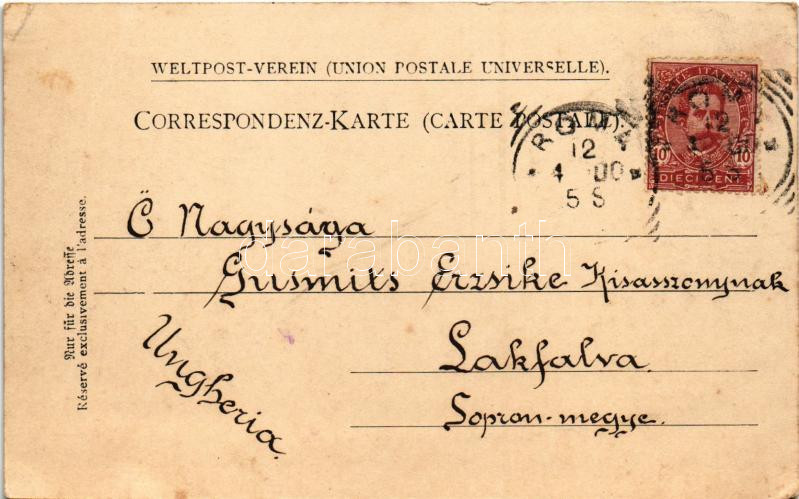 WELTPOST-VEREIN (UNION POSTALE UNIVERSELLE).
CORRESPONDENZ-KARTE (CARTE POSTALE).
ROMA
12
4 00
5 S
10 10
DIECI CENT
Ő Nagysága
Gusmits Erzsike Kisasszonynak
Lakfalva.
Sopron-megye.
Ungheria.
Nur für die Adresse
Réservé exclusivement à l'adresse.
darabanth